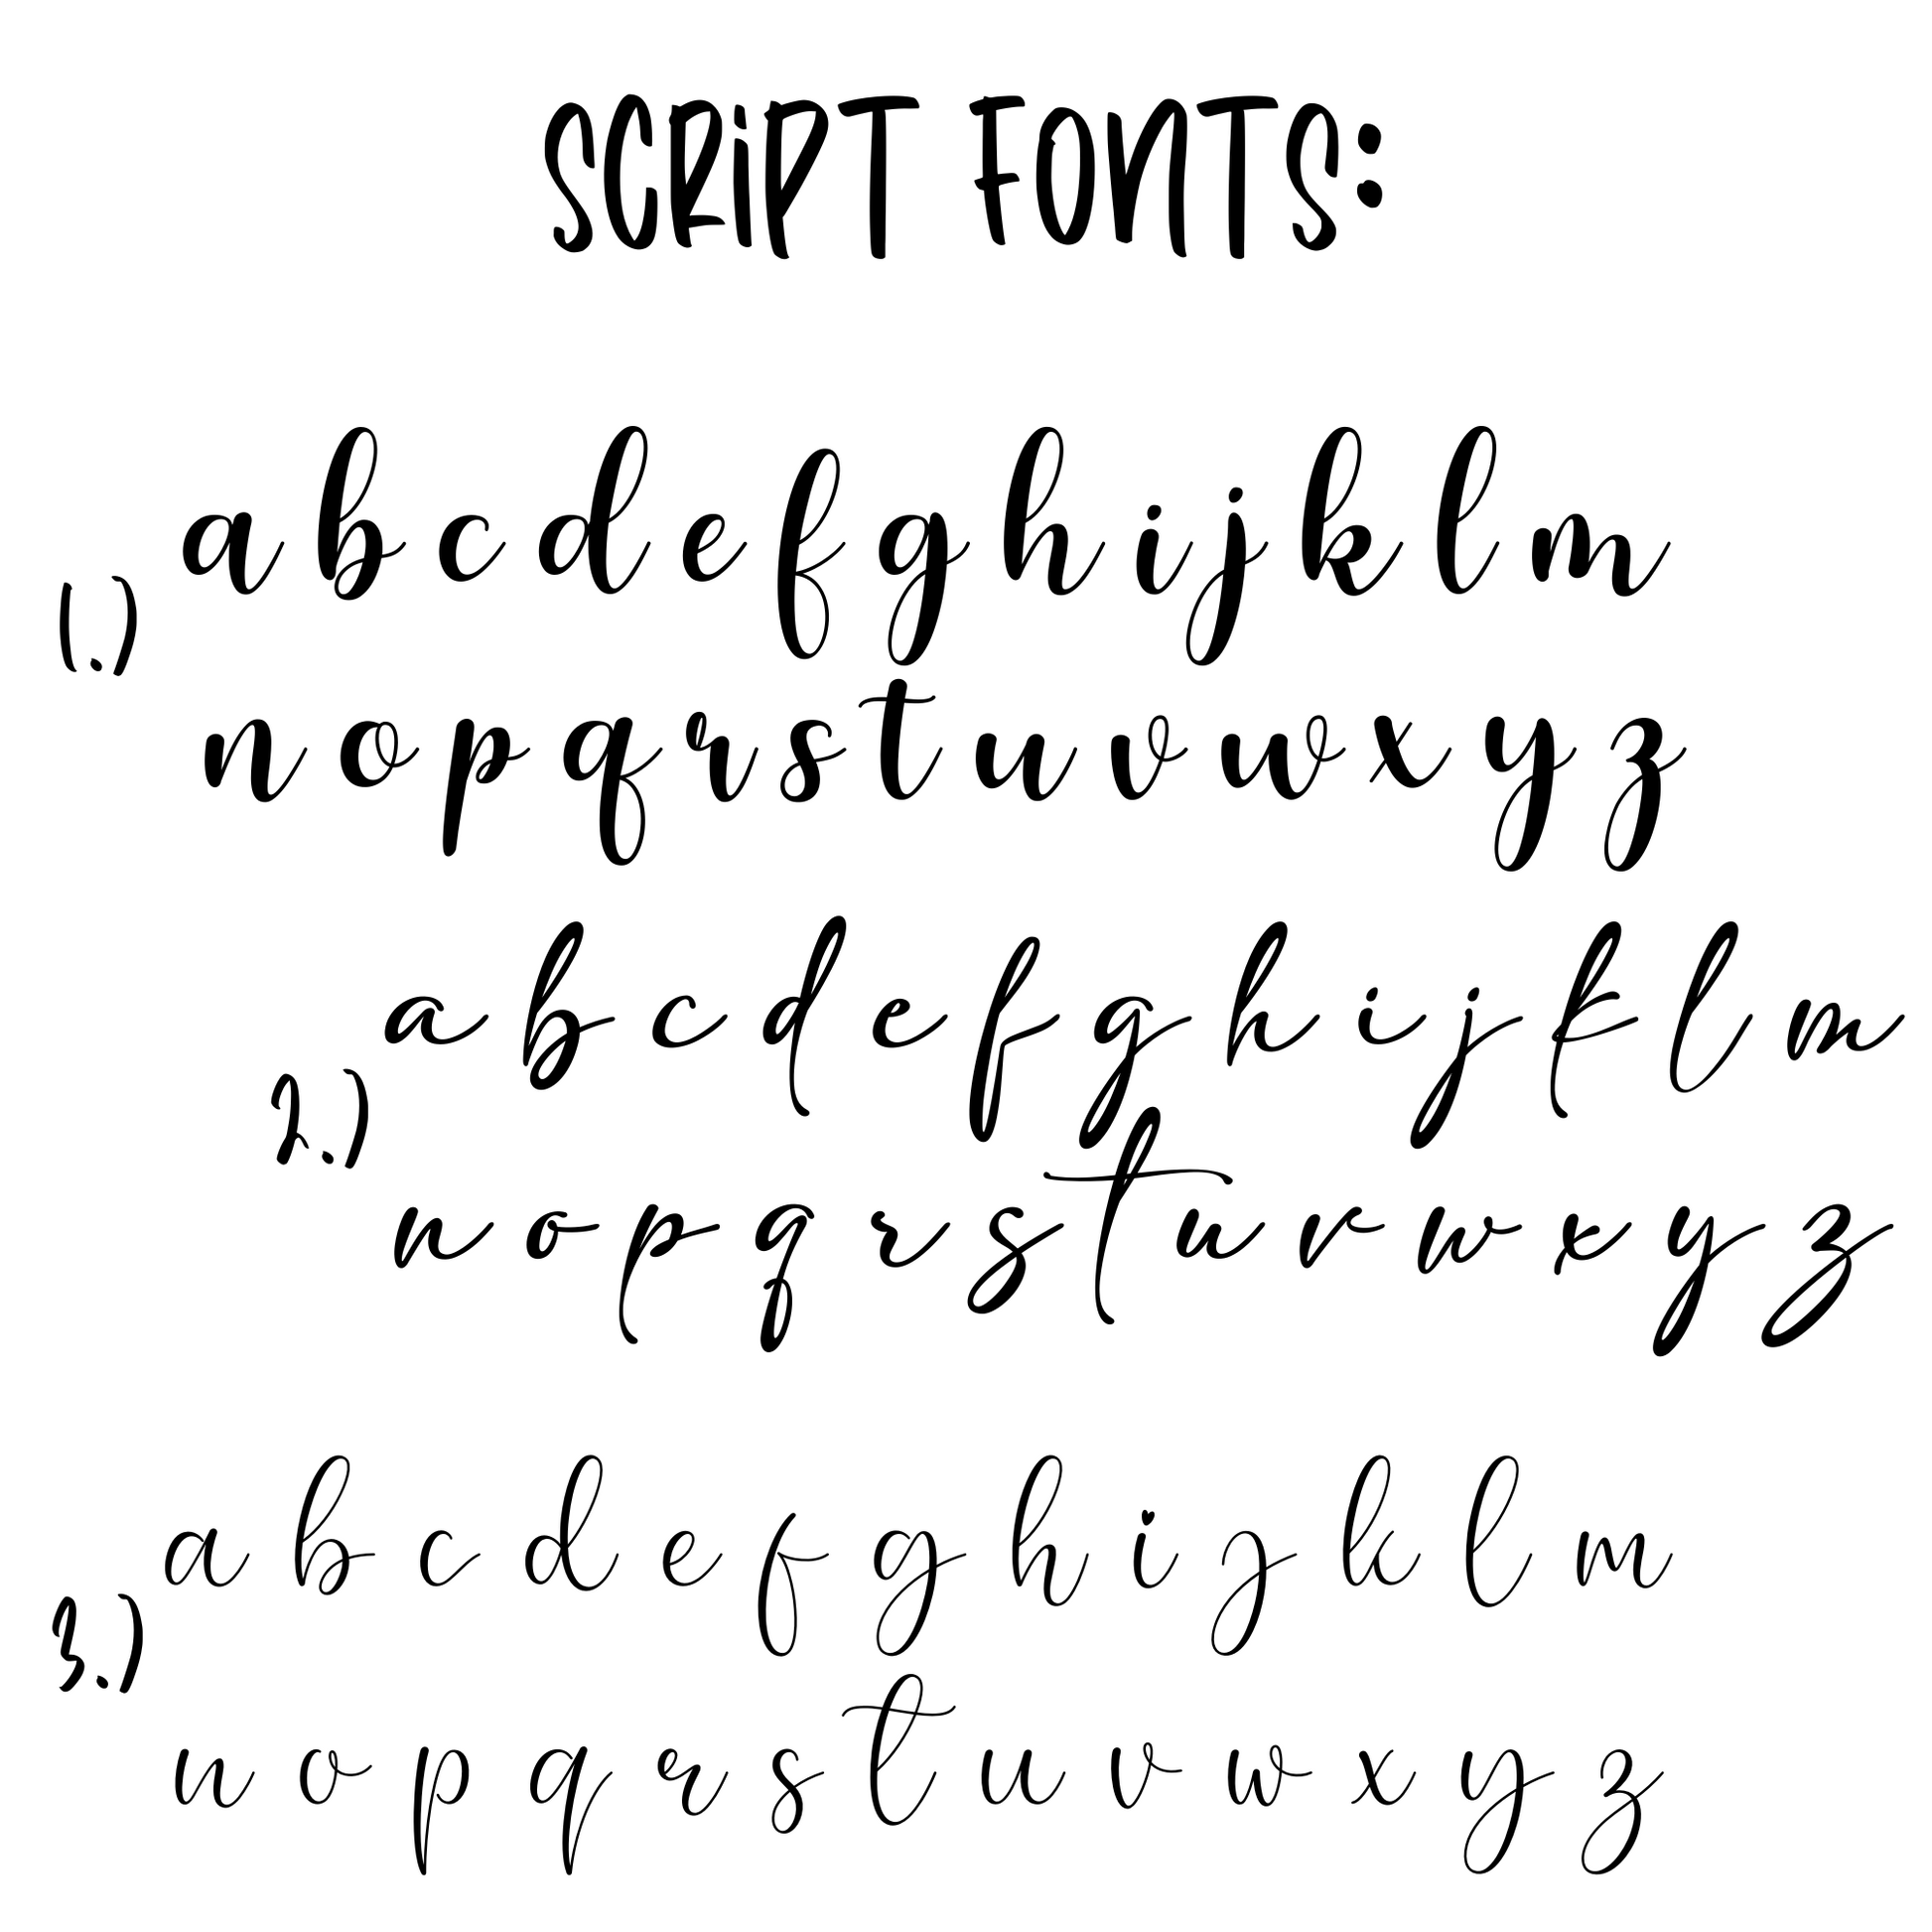 SCRiPT FONTS:
1.) a b c d e f g h i j k l m
n o p q r s t u v w x y z
2.) a b c d e f g h i j k l m
n o p q r s t u v w x y z
3.) a b c d e f g h i j k l m
n o p q r s t u v w x y z